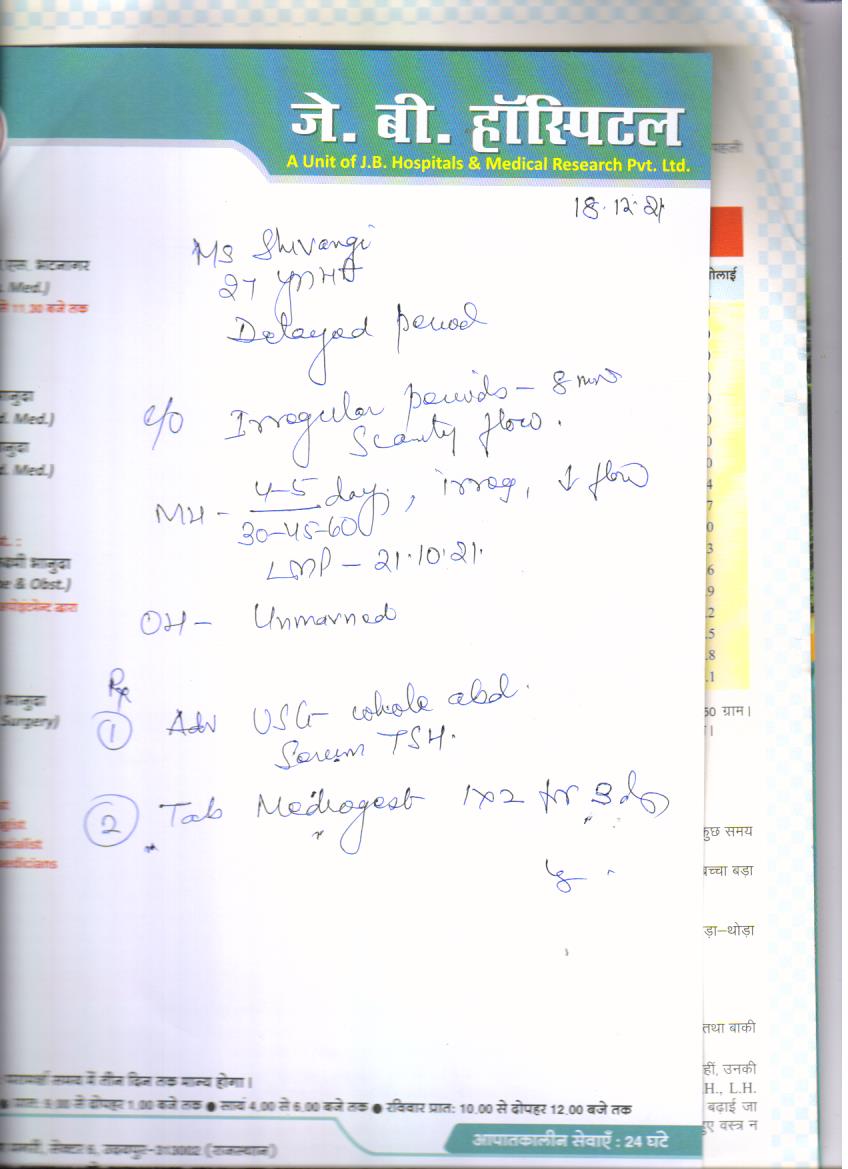 जे. बी. हॉस्पिटल
A Unit of J.B. Hospitals & Medical Research Pvt. Ltd.
18.12.21
Ms Shivangi
27
Delayed period
c/o Irregular periods - 8
Scanty flow.
MH - 4-5 days, irreg, ↓ flow
30-45-60
LMP - 21.10.21.
OH - Unmarried
Rx
① Adv USG whole abd.
Serum TSH.
② Tab Medrogest 1x2 for 3 days
एस. भटनागर
. Med.)
से 11.30 बजे तक
भानुदा
d. Med.)
भानुदा
d. Med.)
भानुदा
e & Obst.)
भानुदा
Surgery)
परामर्श समय में तीन दिन तक मान्य होगा।
प्रात: 9.00 से दोपहर 1.00 बजे तक ● सायं 4.00 से 6.00 बजे तक ● रविवार प्रात: 10.00 से दोपहर 12.00 बजे तक
सेक्टर 6, उदयपुर-313002 (राजस्थान)
आपातकालीन सेवाएँ : 24 घंटे
पहली
गोलाई
4
7
0
3
6
9
.2
.5
.8
.1
50 ग्राम।
कुछ समय
बच्चा बड़ा
ड़ा-थोड़ा
तथा बाकी
हीं, उनकी
H., L.H.
बढ़ाई जा
हुए वस्त्र न